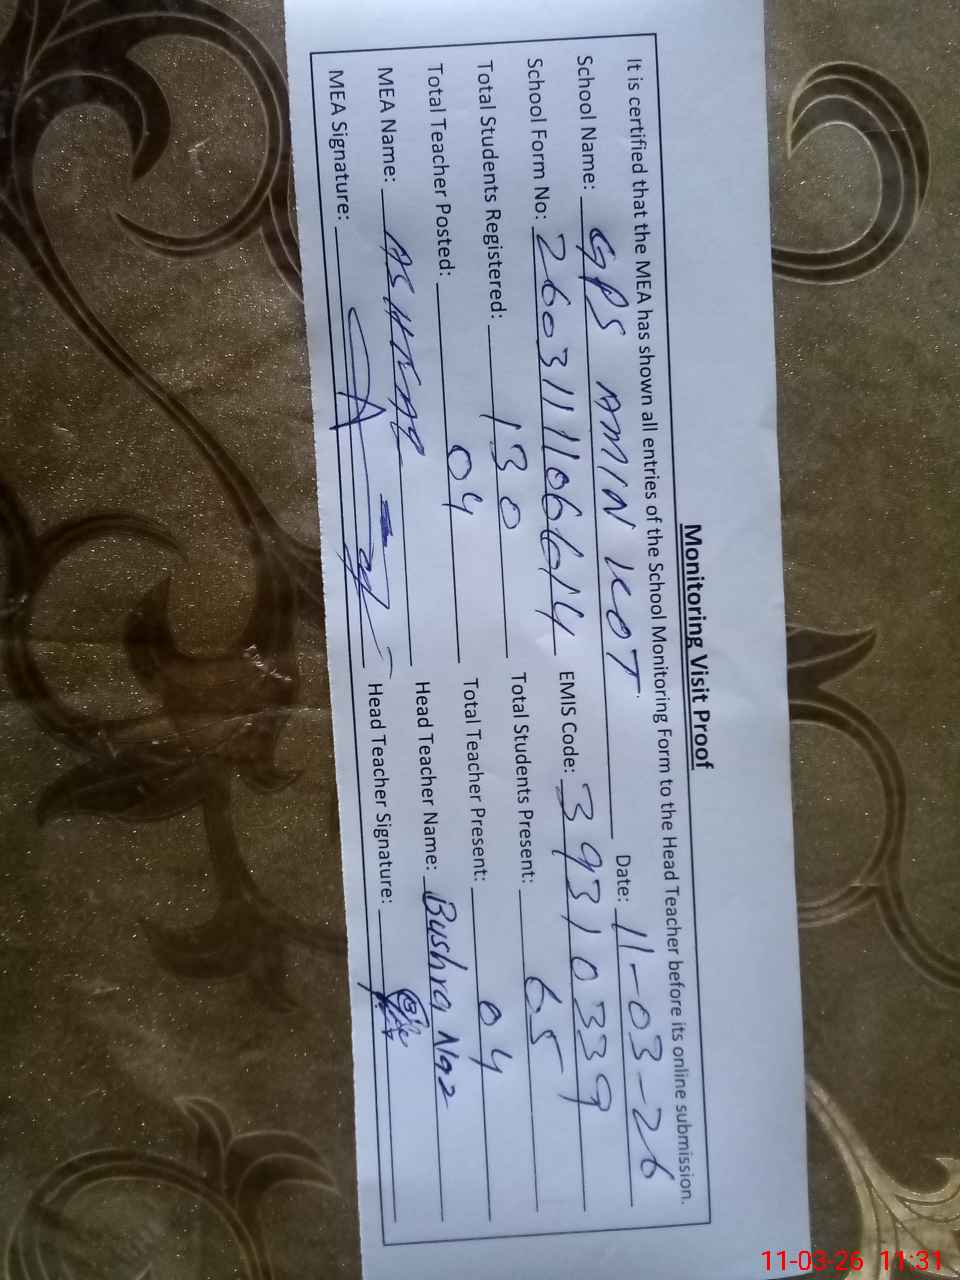 Monitoring Visit Proof
It is certified that the MEA has shown all entries of the School Monitoring Form to the Head Teacher before its online submission.
School Name: GPS AMIN KOT Date: 11-03-26
School Form No: 260311106614 EMIS Code: 39310339
Total Students Registered: 130 Total Students Present: 65
Total Teacher Posted: 04 Total Teacher Present: 04
MEA Name: ASHFAQ Head Teacher Name: Bushra Naz
MEA Signature: Head Teacher Signature:
11-03-26 11:31